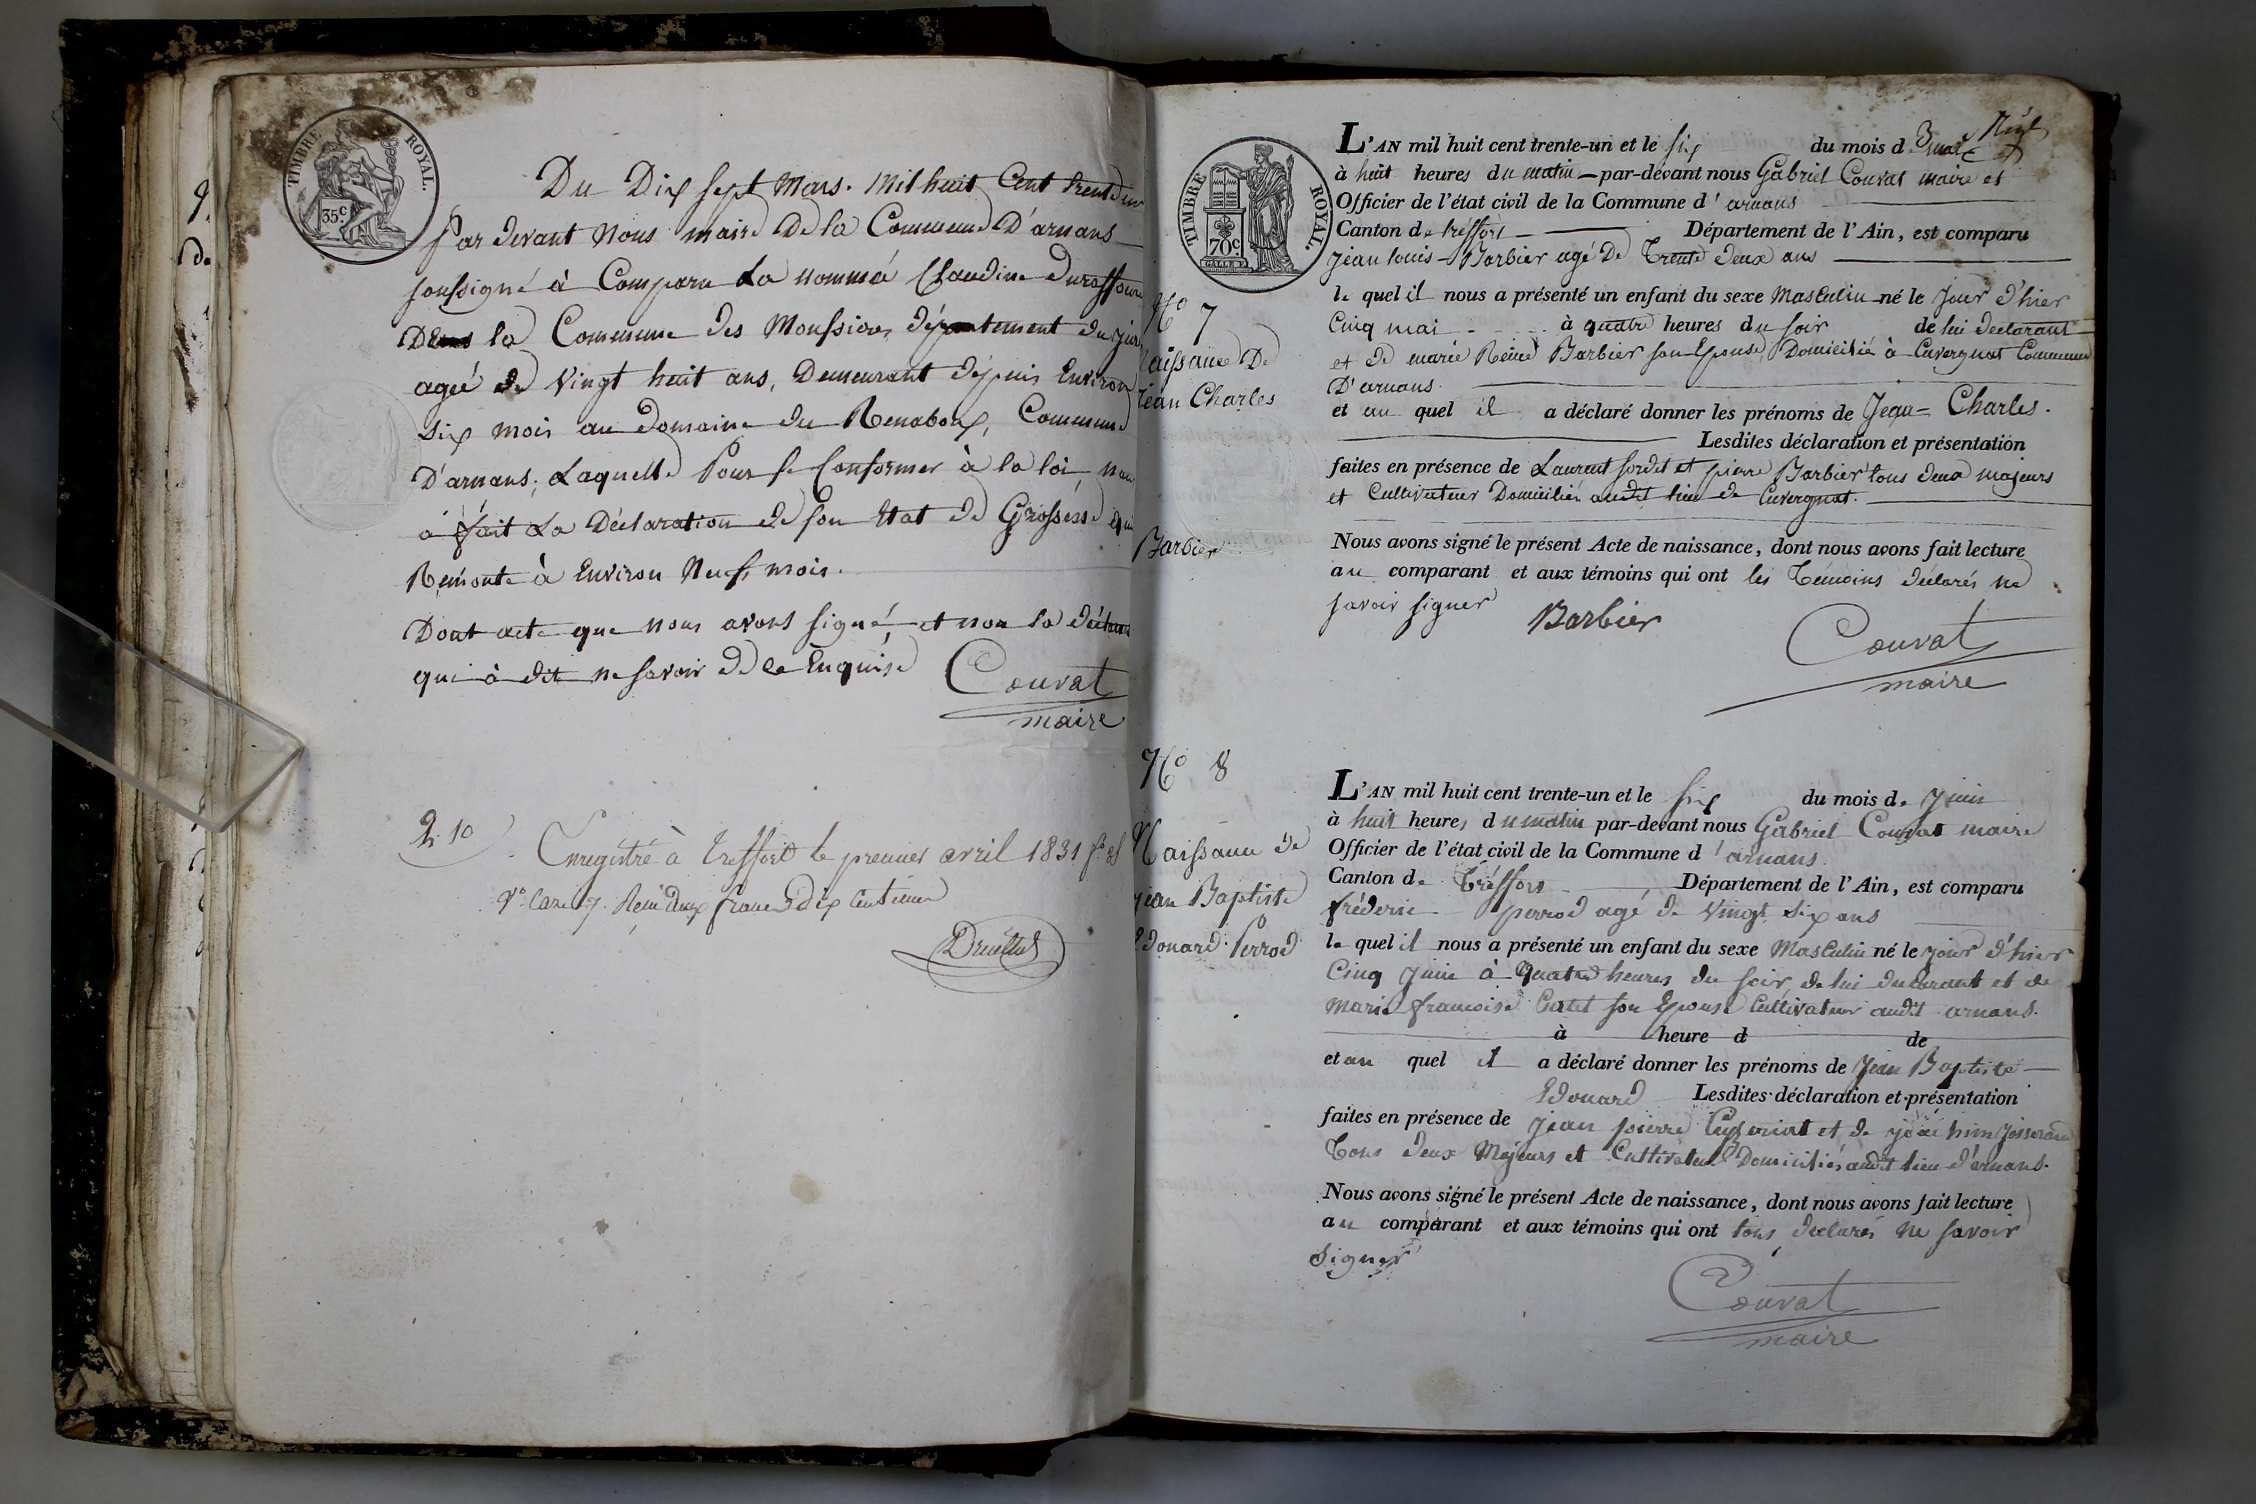 TIMBRE ROYAL.
35c
Du Dix sept Mars. Mil huit Cent trent
Par devant Nous maire De la Commune D'arnans
soussigné à Comparu La nommée Claudine
la Commune des Moussières, département du jura
ageé de Vingt huit ans, Demeurant depuis Environ
six mois au domaine du Renabour, Commune
D'arnans; Laquelle Pour se Conformer à la loi, nous
a fait La Déclaration de son Etat de Grossesse qui
Remonte à Environ Neuf mois.
Dont acte que nous avons signé, et non la
qui à dit ne savoir de ce Enquise
Couvat
maire
2. 10
Enregistré à Treffort le premier avril 1831
Case 7. Reçu deux francs dix Centimes
TIMBRE ROYAL.
70c
No 7
Naissance De
Jean Charles
Barbier
L'AN mil huit cent trente-un et le six du mois d mai
à huit heures du matin par-devant nous Gabriel Couvat maire et
Officier de l'état civil de la Commune d'arnans
Canton de tréffort Département de l'Ain, est comparu
jean louis Barbier agé De Trente deux ans
le quel il nous a présenté un enfant du sexe Masculin né le Jour d'hier
Cinq mai à quatre heures du soir de lui declarant
et de marie Reine Barbier son Epouse, Domicilié à Cuvergnat Commune
D'arnans.
et au quel il a déclaré donner les prénoms de Jean Charles.
Lesdites déclaration et présentation
faites en présence de Laurent sordet et pierre Barbier tous deux majeurs
et Cultivateur Domiciliés audit lieu de Cuvergnat.
Nous avons signé le présent Acte de naissance, dont nous avons fait lecture
au comparant et aux témoins qui ont les Témoins déclarés ne
savoir signer
Barbier
Couvat
maire
No 8
Naissance de
jean Baptiste
Edouard Perrod
L'AN mil huit cent trente-un et le six du mois de Juin
à huit heures du matin par-devant nous Gabriel Couvat maire
Officier de l'état civil de la Commune d'arnans.
Canton de Tréffort Département de l'Ain, est comparu
fréderic perrod agé de Vingt six ans
le quel il nous a présenté un enfant du sexe Masculin né le jour d'hier
Cinq Juin à Quatre heures du soir, de lui declarant et de
marie francoise Cattet son Epouse Cultivateur audit arnans.
à heure d de
et au quel il a déclaré donner les prénoms de Jean Baptiste
Edouard Lesdites déclaration et présentation
faites en présence de jean pierre et de joachim Josserand
Tous deux Majeurs et Cultivateur Domiciliés audit lieu d'arnans.
Nous avons signé le présent Acte de naissance, dont nous avons fait lecture
au comparant et aux témoins qui ont tous declarés ne savoir
signer
Couvat
maire